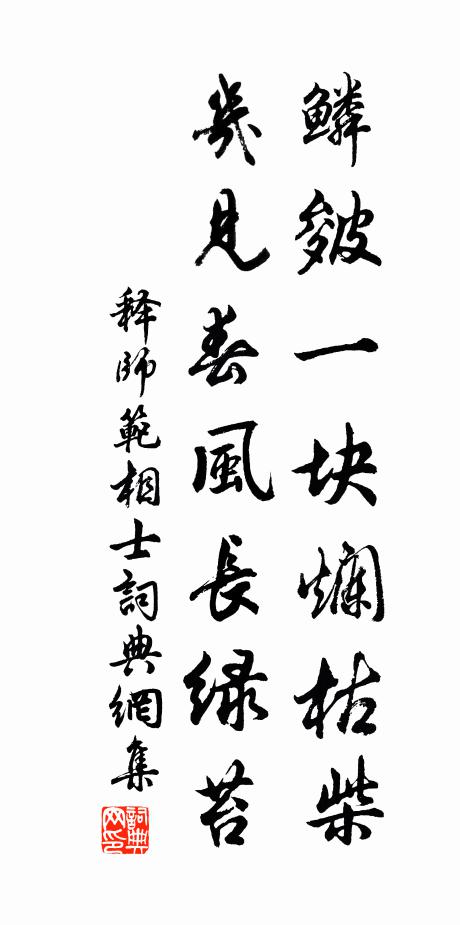 鱗皴一块爛枯柴
幾見春風長緑苔
释師範相士詞典網集
詞典网印